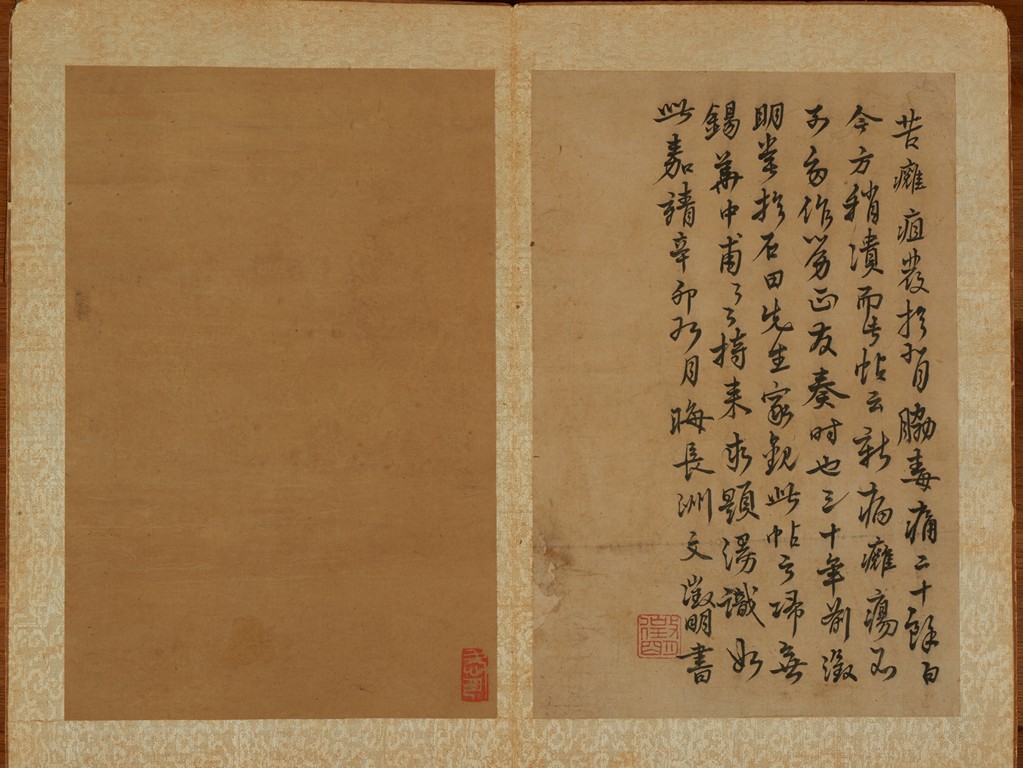 苦癰疽發於背脇毒痛二十餘日
今方稍潰而此帖云新病癰瘍不
可多作勞正友奏時也三十年前徵
明嘗於石田先生家觀此帖今歸無
錫華中甫中甫持來求題漫識如
此嘉靖辛卯九月晦長洲文徵明書